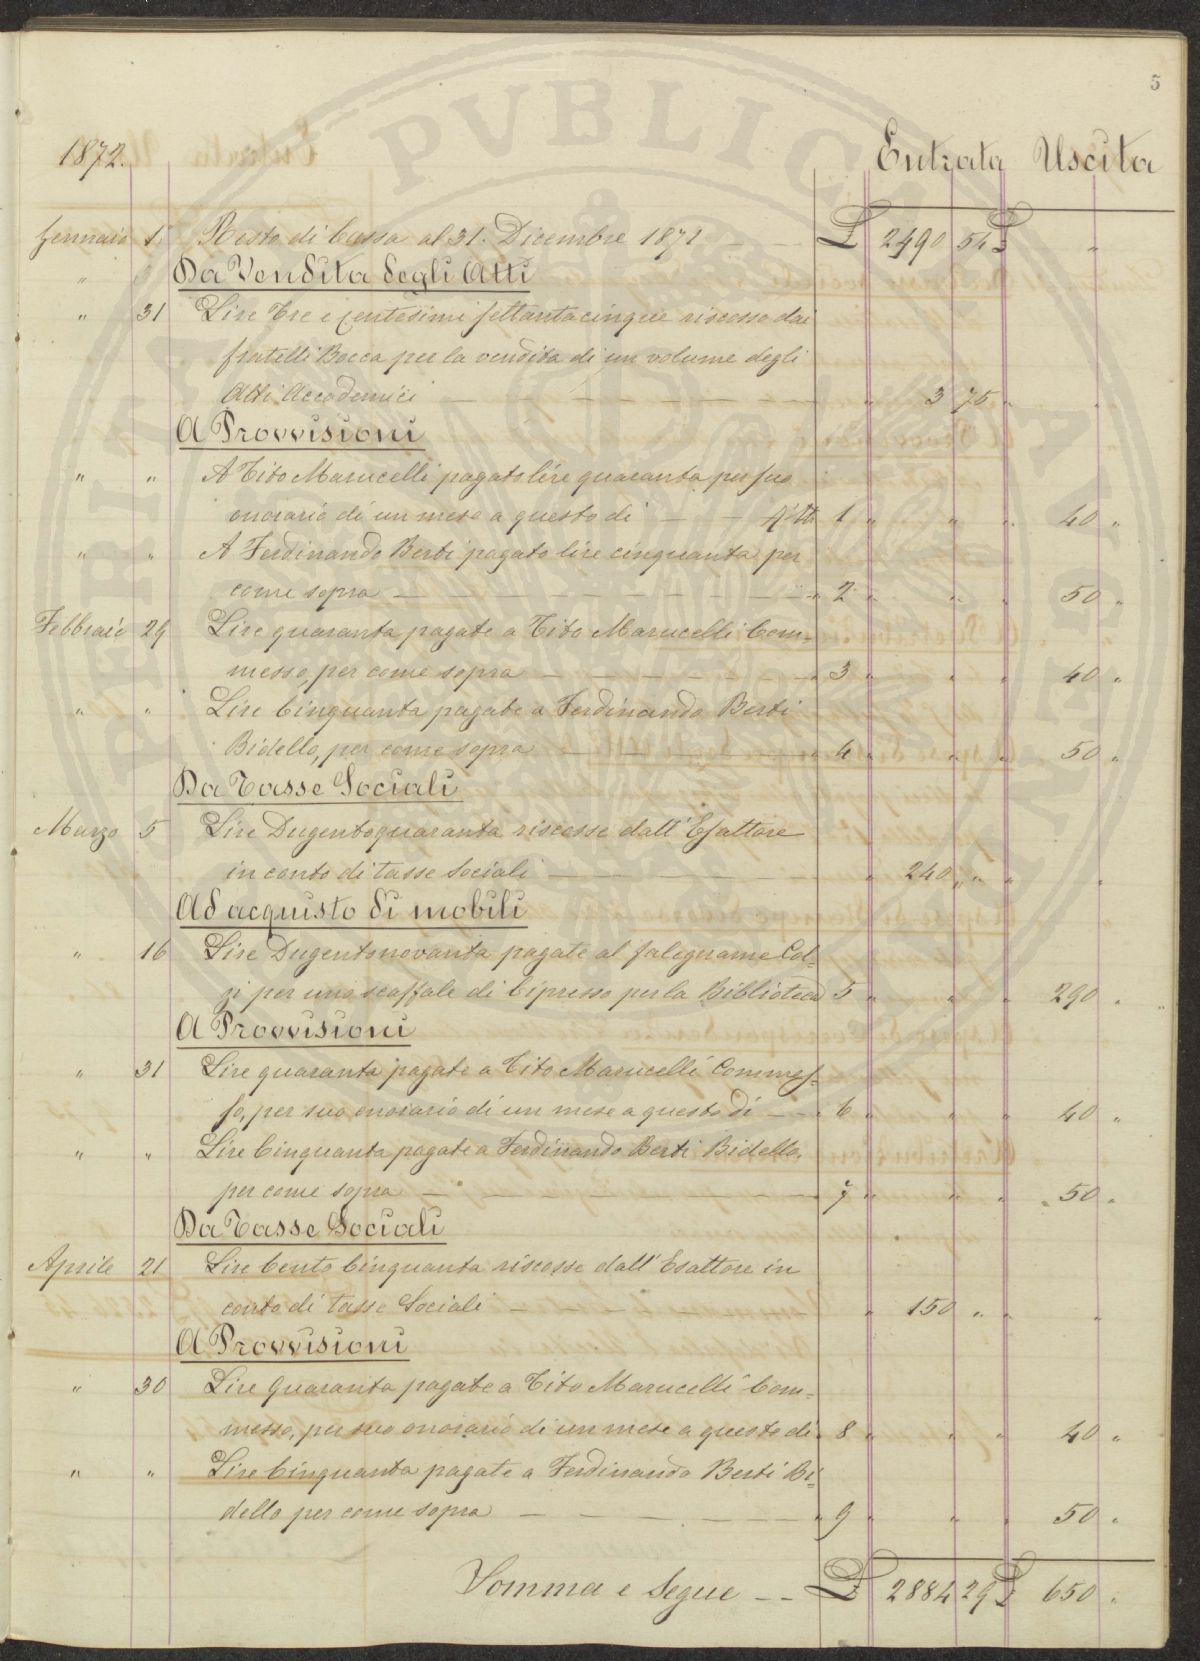 5
1872. Entrata Uscita
Gennaio 1. Resto di Cassa al 31. Dicembre 1871 — — £ 2490 54 £ "
" Da Vendita degli Atti
" 31 Lire Tre e Centesimi settantacinque riscosse dai
fratelli Bocca per la vendita di un volume degli
Atti Accademici — — — — — — — " 3 75 " "
A Provvisioni
" " A Tito Marucelli pagato lire quaranta per suo
onorario di un mese a questo dì — — 1 " " " 40 "
" " A Ferdinando Berti pagato lire cinquanta per
come sopra — — — — — — — — " 2 " " " 50 "
Febbraio 29 Lire quaranta pagate a Tito Marucelli Com=
messo, per come sopra — — — — — — " 3 " " " 40 "
" " Lire Cinquanta pagate a Ferdinando Berti
Bidello, per come sopra — — — — — " 4 " " " 50 "
Da Tasse Sociali
Marzo 5 Lire Dugentoquaranta riscosse dall'Esattore
in conto di tasse Sociali — — — — — " 240 " " " "
Ad acquisto di mobili
" 16 Lire Dugentonovanta pagate al falegname Col=
zi per uno scaffale di Cipresso per la Biblioteca 5 " " " 290 "
A Provvisioni
" 31 Lire quaranta pagate a Tito Marucelli Commes=
so, per suo onorario di un mese a questo dì — — " 6 " " " 40 "
" " Lire Cinquanta pagate a Ferdinando Berti Bidello,
per come sopra — — — — — — — — " 7 " " " 50 "
Da Tasse Sociali
Aprile 21 Lire Cento Cinquanta riscosse dall'Esattore in
conto di Tasse Sociali — — — — — — " 150 " " "
A Provvisioni
" 30 Lire Quaranta pagate a Tito Marucelli Com=
messo, per suo onorario di un mese a questo dì " 8 " " " 40 "
" " Lire Cinquanta pagate a Ferdinando Berti Bi=
dello per come sopra — — — — — — " 9 " " " 50 "
Somma e Segue — — £ 2884 29 £ 650 "